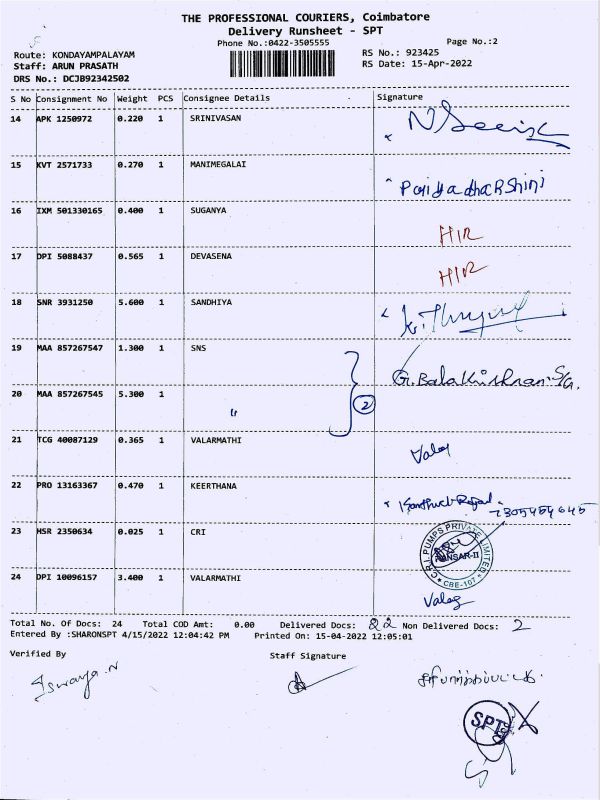 THE PROFESSIONAL COURIERS, Coimbatore
Delivery Runsheet - SPT
Phone No.:0422-3505555
Page No.:2
Route: KONDAYAMPALAYAM
RS No.: 923425
Staff: ARUN PRASATH
RS Date: 15-Apr-2022
DRS No.: DCJB92342502
S No Consignment No Weight PCS Consignee Details Signature
14 APK 1250972 0.220 1 SRINIVASAN
15 KVT 2571733 0.270 1 MANIMEGALAI PariyadharShini
16 IXM 501330165 0.400 1 SUGANYA HIR
17 DPI 5088437 0.565 1 DEVASENA HIR
18 SNR 3931250 5.600 1 SANDHIYA
19 MAA 857267547 1.300 1 SNS G. Balakrishnan. S/G.
20 MAA 857267545 5.300 1 " 2
21 TCG 40087129 0.365 1 VALARMATHI Valar
22 PRO 13163367 0.470 1 KEERTHANA
7305459645
23 HSR 2350634 0.025 1 CRI
C.R.I. PUMPS PRIVATE LIMITED
ANSAR-II
CBE-107
24 DPI 10096157 3.400 1 VALARMATHI
Valar
Total No. Of Docs: 24 Total COD Amt: 0.00 Delivered Docs: 22 Non Delivered Docs: 2
Entered By :SHARONSPT 4/15/2022 12:04:42 PM Printed On: 15-04-2022 12:05:01
Verified By Staff Signature
Iswarya.N
சரிபார்க்கப்பட்டது.
SPT